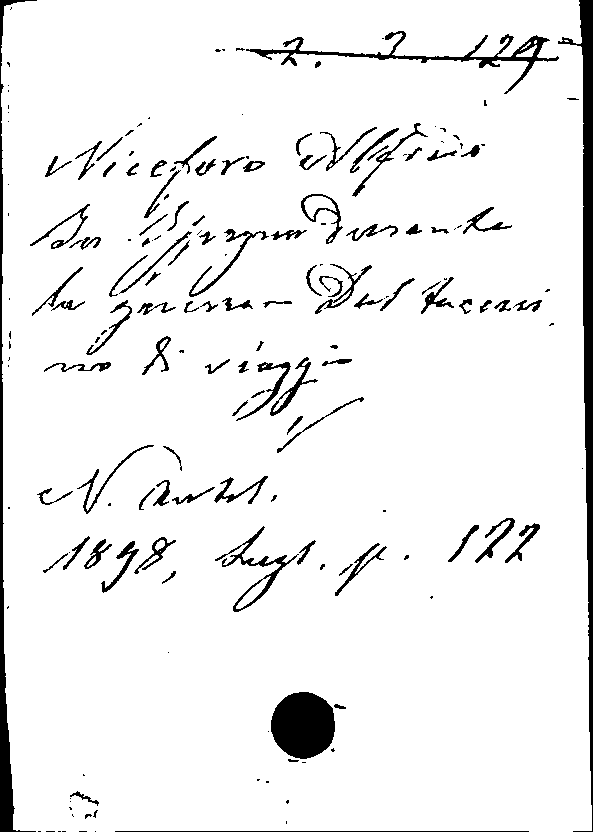 2. 3. 129
Niceforo Alfredo
La Spagna durante
la guerra - Dal taccui
no di viaggio
N. Antol.
1898, Lugl. p. 122